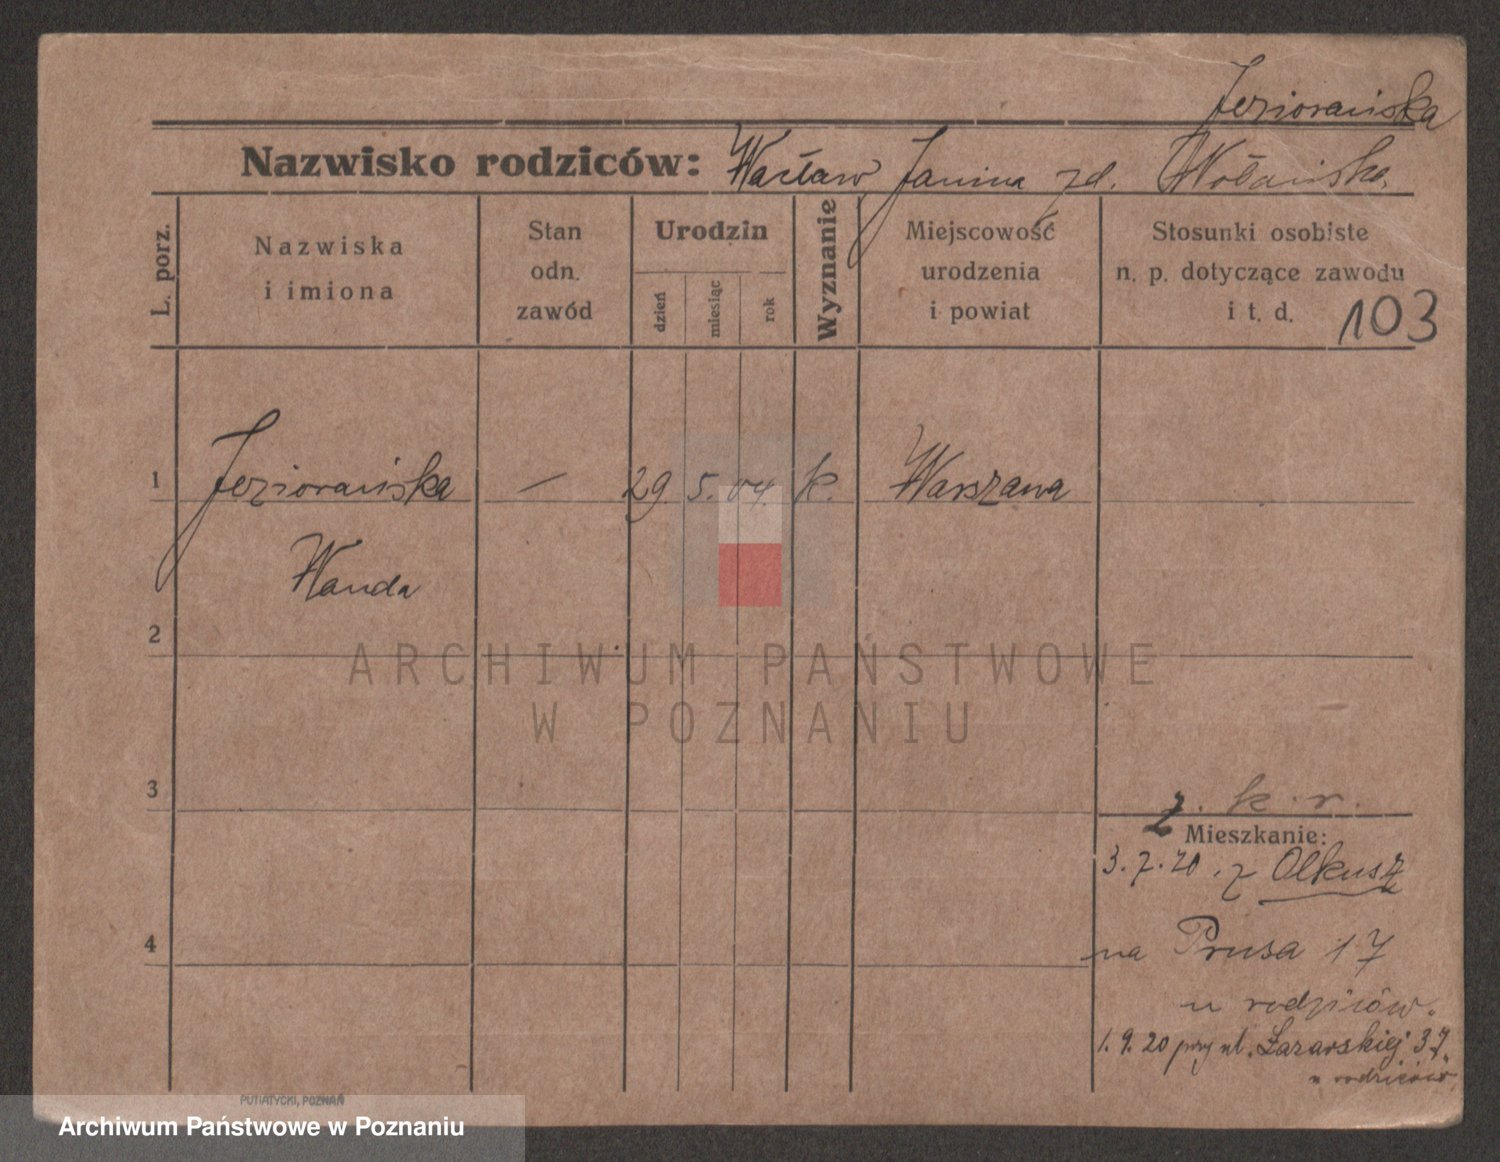 Jeziorańska
Nazwisko rodziców: Wacław Janina zd. Wolańska
L. porz.
Nazwiska
i imiona
Stan
odn.
zawód
Urodzin
dzień
miesiąc
rok
Wyznanie
Miejscowość
urodzenia
i powiat
Stosunki osobiste
n. p. dotyczące zawodu
i t. d.
103
1 Jeziorańska — 29. 5. 04. k. Warszawa
Wanda
2
ARCHIWUM PAŃSTWOWE
W POZNANIU
3
z. k. r.
Mieszkanie:
3. 7. 20. z Olkusz
4
na Prusa 17
u rodziców.
1. 9. 20 przy ul. Łazarskiej 37.
u rodziców
PUTIATYCKI, POZNAŃ
Archiwum Państwowe w Poznaniu